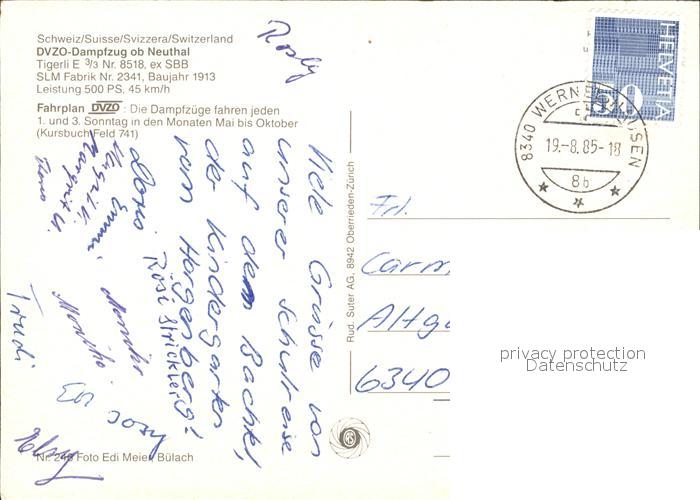 Schweiz/Suisse/Svizzera/Switzerland
DVZO-Dampfzug ob Neuthal
Tigerli E 3/3 Nr. 8518, ex SBB
SLM Fabrik Nr. 2341, Baujahr 1913
Leistung 500 PS. 45 km/h
Fahrplan DVZO: Die Dampfzüge fahren jeden
1. und 3. Sonntag in den Monaten Mai bis Oktober
(Kursbuch Feld 741)
Rosly
Viele Grüsse von
unserer Schulreise
auf dem Bachtel,
der Kindergarten
vom Horgenberg!
Rösi Strickler
Doris
Emmi
Monika
Monika
Trudi
Nr. 246 Foto Edi Meier, Bülach
Rud. Suter AG, 8942 Oberrieden-Zürich
HELVETIA
50
8340 WERNETSHAUSEN
19.-8.85-18
8b
Frl.
Carm
Altga
6340
privacy protection
Datenschutz